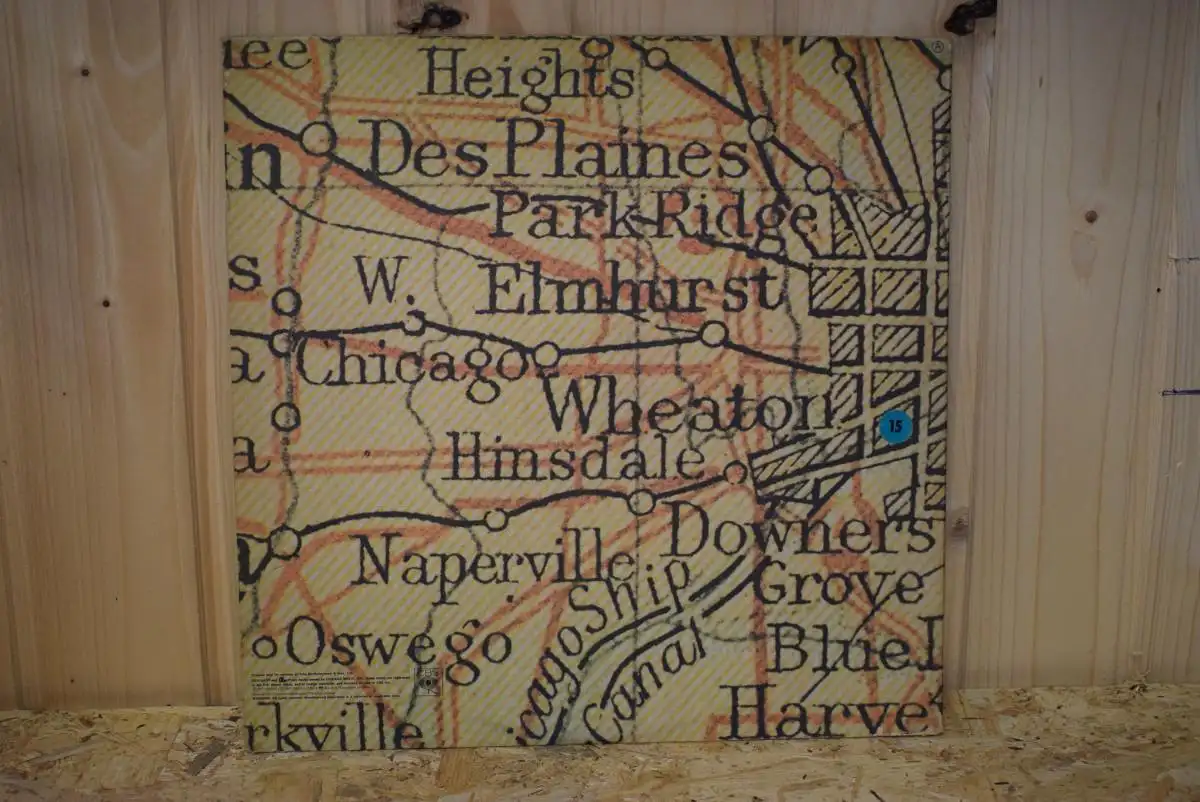 lee
Heights
Des Plaines
in
Park Ridge
s
W.
Elmhurst
a
Chicago
Wheaton
15
a
Hinsdale
Downers
Naperville
Grove
icago Ship
Canal
Oswego
Blue I
rkville
Harve